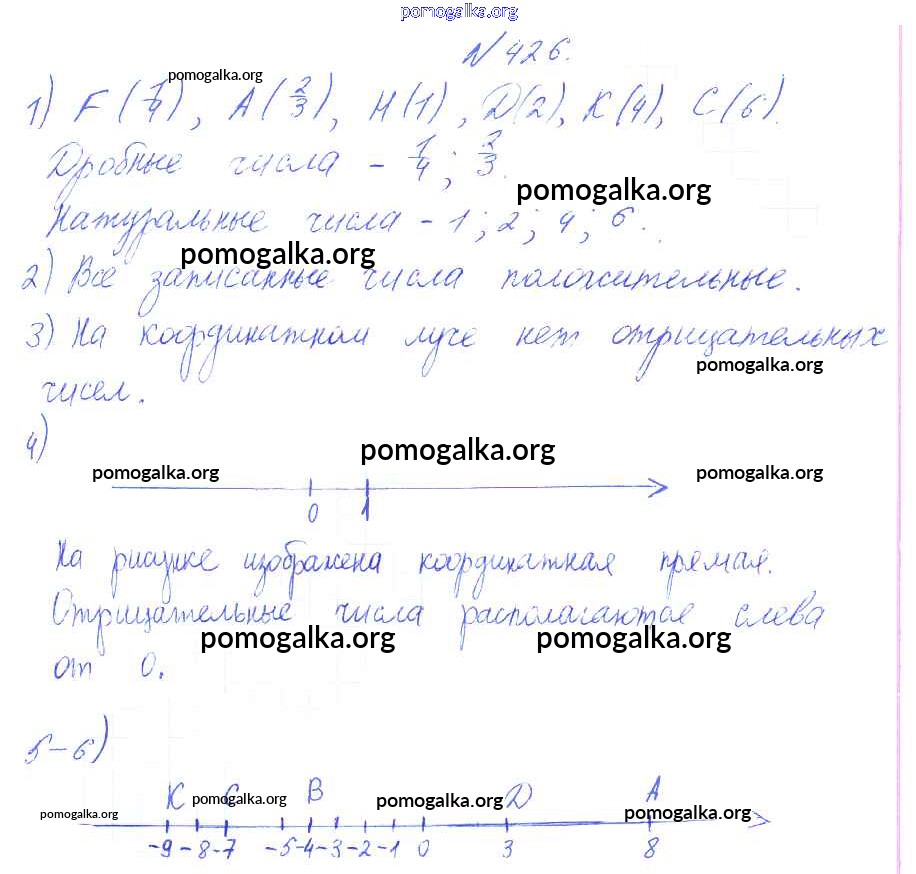 pomogalka.org
N 426.
pomogalka.org
1) F (1/4), A (2/3), M (1), D (2), K (4), C (6).
Дробные числа - 1/4; 2/3.
pomogalka.org
Натуральные числа - 1; 2; 4; 6.
pomogalka.org
2) Все записанные числа положительные.
3) На координатном луче нет отрицательных
pomogalka.org
чисел.
4)
pomogalka.org
pomogalka.org pomogalka.org
0 1
На рисунке изображена координатная прямая.
Отрицательные числа располагаются слева
pomogalka.org pomogalka.org
от 0.
5-6)
K C B D A
pomogalka.org pomogalka.org
pomogalka.org pomogalka.org
-9 -8 -7 -5 -4 -3 -2 -1 0 3 8